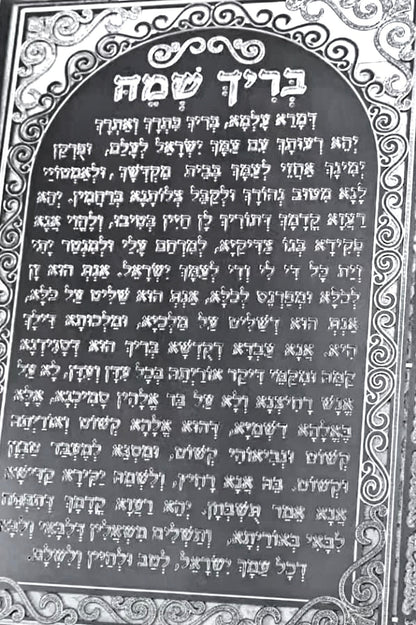 בְּרִיךְ שְׁמֵהּ
דְּמָרֵא עָלְמָא, בְּרִיךְ כִּתְרָךְ וְאַתְרָךְ
יְהֵא רְעוּתָךְ עִם עַמָּךְ יִשְׂרָאֵל לְעָלַם, וּפֻרְקַן
יְמִינָךְ אַחֲזֵי לְעַמָּךְ בְּבֵית מִקְדָּשָׁךְ, וּלְאַמְטוֹיֵי
לָנָא מִטּוּב נְהוֹרָךְ וּלְקַבֵּל צְלוֹתָנָא בְּרַחֲמִין. יְהֵא
רַעֲוָא קֳדָמָךְ דְּתוֹרִיךְ לָן חַיִּין בְּטִיבוּ, וְלֶהֱוֵי אֲנָא
פְקִידָא בְּגוֹ צַדִּיקַיָּא, לְמִרְחַם עֲלַי וּלְמִנְטַר יָתִי
וְיַת כָּל דִּי לִי וְדִי לְעַמָּךְ יִשְׂרָאֵל. אַנְתְּ הוּא זָן
לְכֹלָּא וּמְפַרְנֵס לְכֹלָּא, אַנְתְּ הוּא שַׁלִּיט עַל כֹּלָּא,
אַנְתְּ הוּא דְשַׁלִּיט עַל מַלְכַיָּא, וּמַלְכוּתָא דִּילָךְ
הִיא. אֲנָא עַבְדָּא דְקֻדְשָׁא בְּרִיךְ הוּא דְּסָגִידְנָא
קַמֵּהּ וּמִקַּמֵּי דִּיקַר אוֹרַיְתֵהּ בְּכָל עִדָּן וְעִדָּן, לָא עַל
אֱנָשׁ רָחִיצְנָא וְלָא עַל בַּר אֱלָהִין סָמִיכְנָא, אֶלָּא
בֶּאֱלָהָא דִשְׁמַיָּא, דְּהוּא אֱלָהָא קְשׁוֹט וְאוֹרַיְתֵהּ
קְשׁוֹט וּנְבִיאוֹהִי קְשׁוֹט, וּמַסְגֵּא לְמֶעְבַּד טַבְוָן
וּקְשׁוֹט. בֵּהּ אֲנָא רָחִיץ, וְלִשְׁמֵהּ יַקִּירָא קַדִּישָׁא
אֲנָא אֵמַר תֻּשְׁבְּחָן. יְהֵא רַעֲוָא קֳדָמָךְ דְּתִפְתַּח
לִבַּאי בְּאוֹרַיְתָא, וְתַשְׁלִים מִשְׁאֲלִין דְּלִבַּאי וְלִבָּא
דְכָל עַמָּךְ יִשְׂרָאֵל, לְטַב וּלְחַיִּין וְלִשְׁלָם.